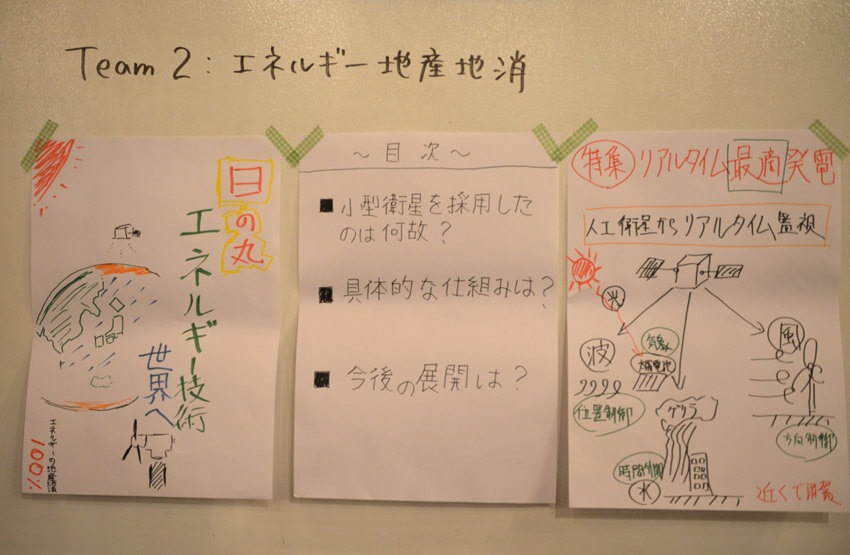 Team 2: エネルギー地産地消
日の丸
エネルギー技術
世界へ
エネルギーの地産地消
100%
～目次～
■ 小型衛星を採用した
のは何故？
■ 具体的な仕組みは？
■ 今後の展開は？
特集 リアルタイム最適発電
人工衛星からリアルタイム監視
光
波
気象
太陽電池
風
位置制御
ゲリラ
方向制御
時間制御
水
近くで消費